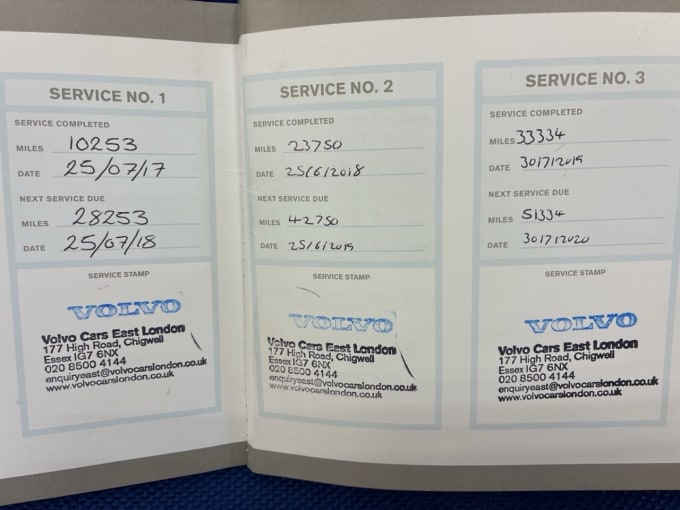 SERVICE NO. 1
SERVICE COMPLETED
MILES 10253
DATE 25/07/17
NEXT SERVICE DUE
MILES 28253
DATE 25/07/18
SERVICE STAMP
VOLVO
Volvo Cars East London
177 High Road, Chigwell
Essex IG7 6NX
020 8500 4144
enquiryeast@volvocarslondon.co.uk
www.volvocarslondon.co.uk
SERVICE NO. 2
SERVICE COMPLETED
MILES 23750
DATE 25/6/2018
NEXT SERVICE DUE
MILES 42750
DATE 25/6/2019
SERVICE STAMP
VOLVO
Volvo Cars East London
177 High Road, Chigwell
Essex IG7 6NX
020 8500 4144
enquiryeast@volvocarslondon.co.uk
www.volvocarslondon.co.uk
SERVICE NO. 3
SERVICE COMPLETED
MILES 33334
DATE 30/7/2019
NEXT SERVICE DUE
MILES 51334
DATE 30/7/2020
SERVICE STAMP
VOLVO
Volvo Cars East London
177 High Road, Chigwell
Essex IG7 6NX
020 8500 4144
enquiryeast@volvocarslondon.co.uk
www.volvocarslondon.co.uk